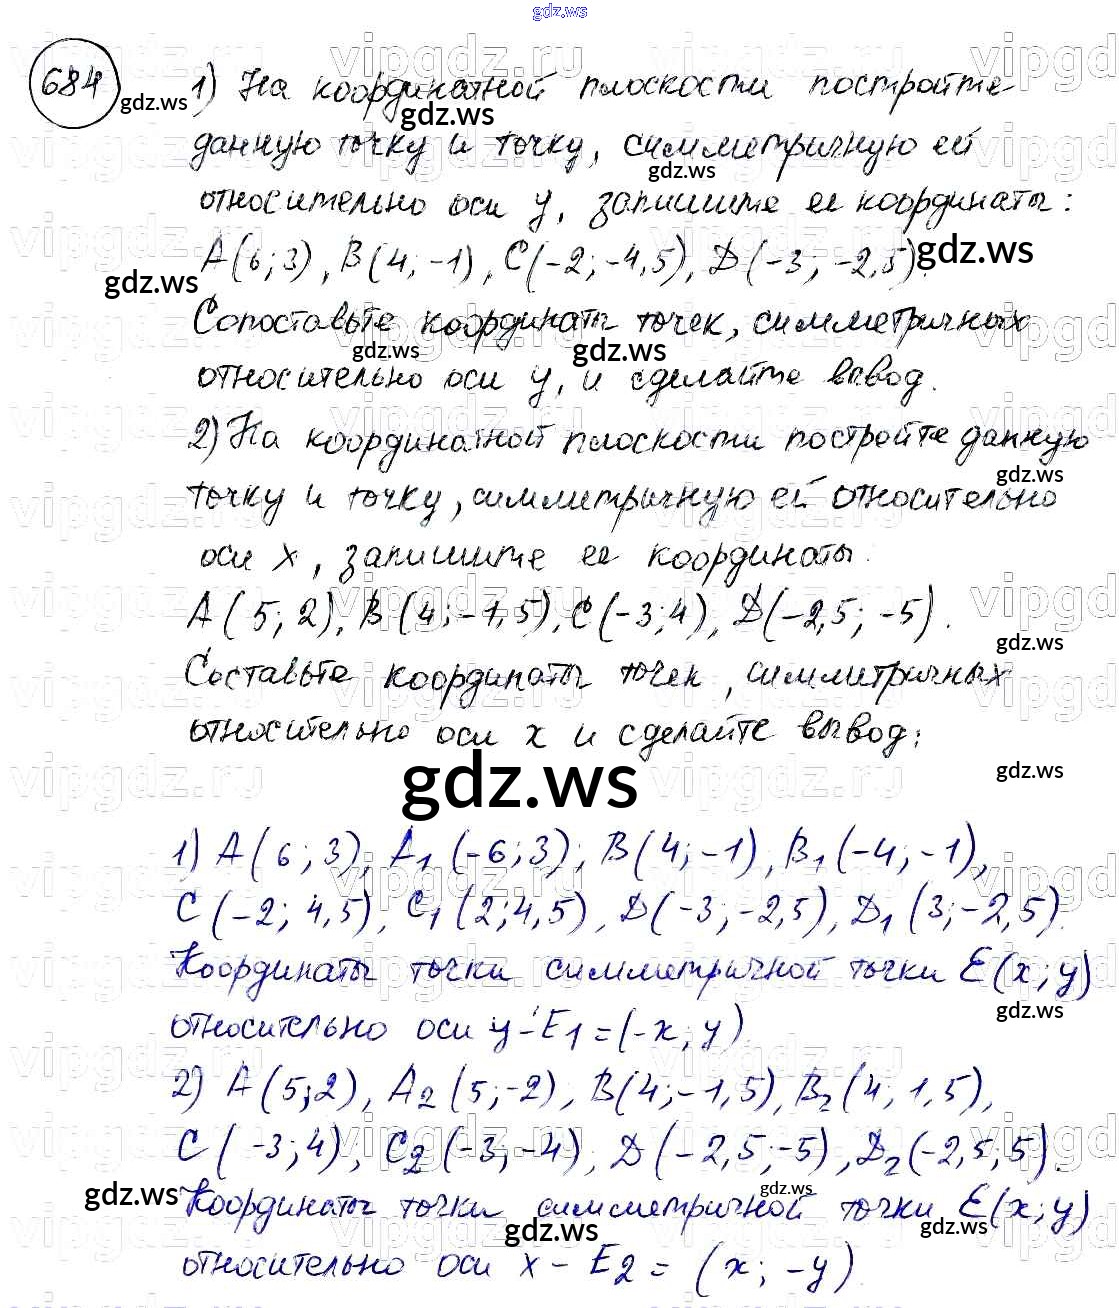 gdz.ws
684
1) На координатной плоскости постройте
данную точку и точку, симметричную ей
относительно оси y, запишите ее координаты:
A(6;3), B(4;-1), C(-2;-4,5), D(-3;-2,5).
Сопоставьте координаты точек, симметричных
относительно оси y, и сделайте вывод.
2) На координатной плоскости постройте данную
точку и точку, симметричную ей относительно
оси x, запишите ее координаты:
A(5;2), B(4;-1,5), C(-3;4), D(-2,5;-5).
Составьте координаты точек, симметричных
относительно оси x и сделайте вывод:
gdz.ws
1) A(6;3), A1(-6;3), B(4;-1), B1(-4;-1),
C(-2; 4,5), C1(2;4,5), D(-3;-2,5), D1(3;-2,5).
Координаты точки симметричной точки E(x;y)
относительно оси y - E1=(-x;y)
2) A(5;2), A2(5;-2), B(4;-1,5), B2(4;1,5),
C(-3;4), C2(-3;-4), D(-2,5;-5), D2(-2,5;5).
Координаты точки симметричной точки E(x;y)
относительно оси x - E2=(x;-y)